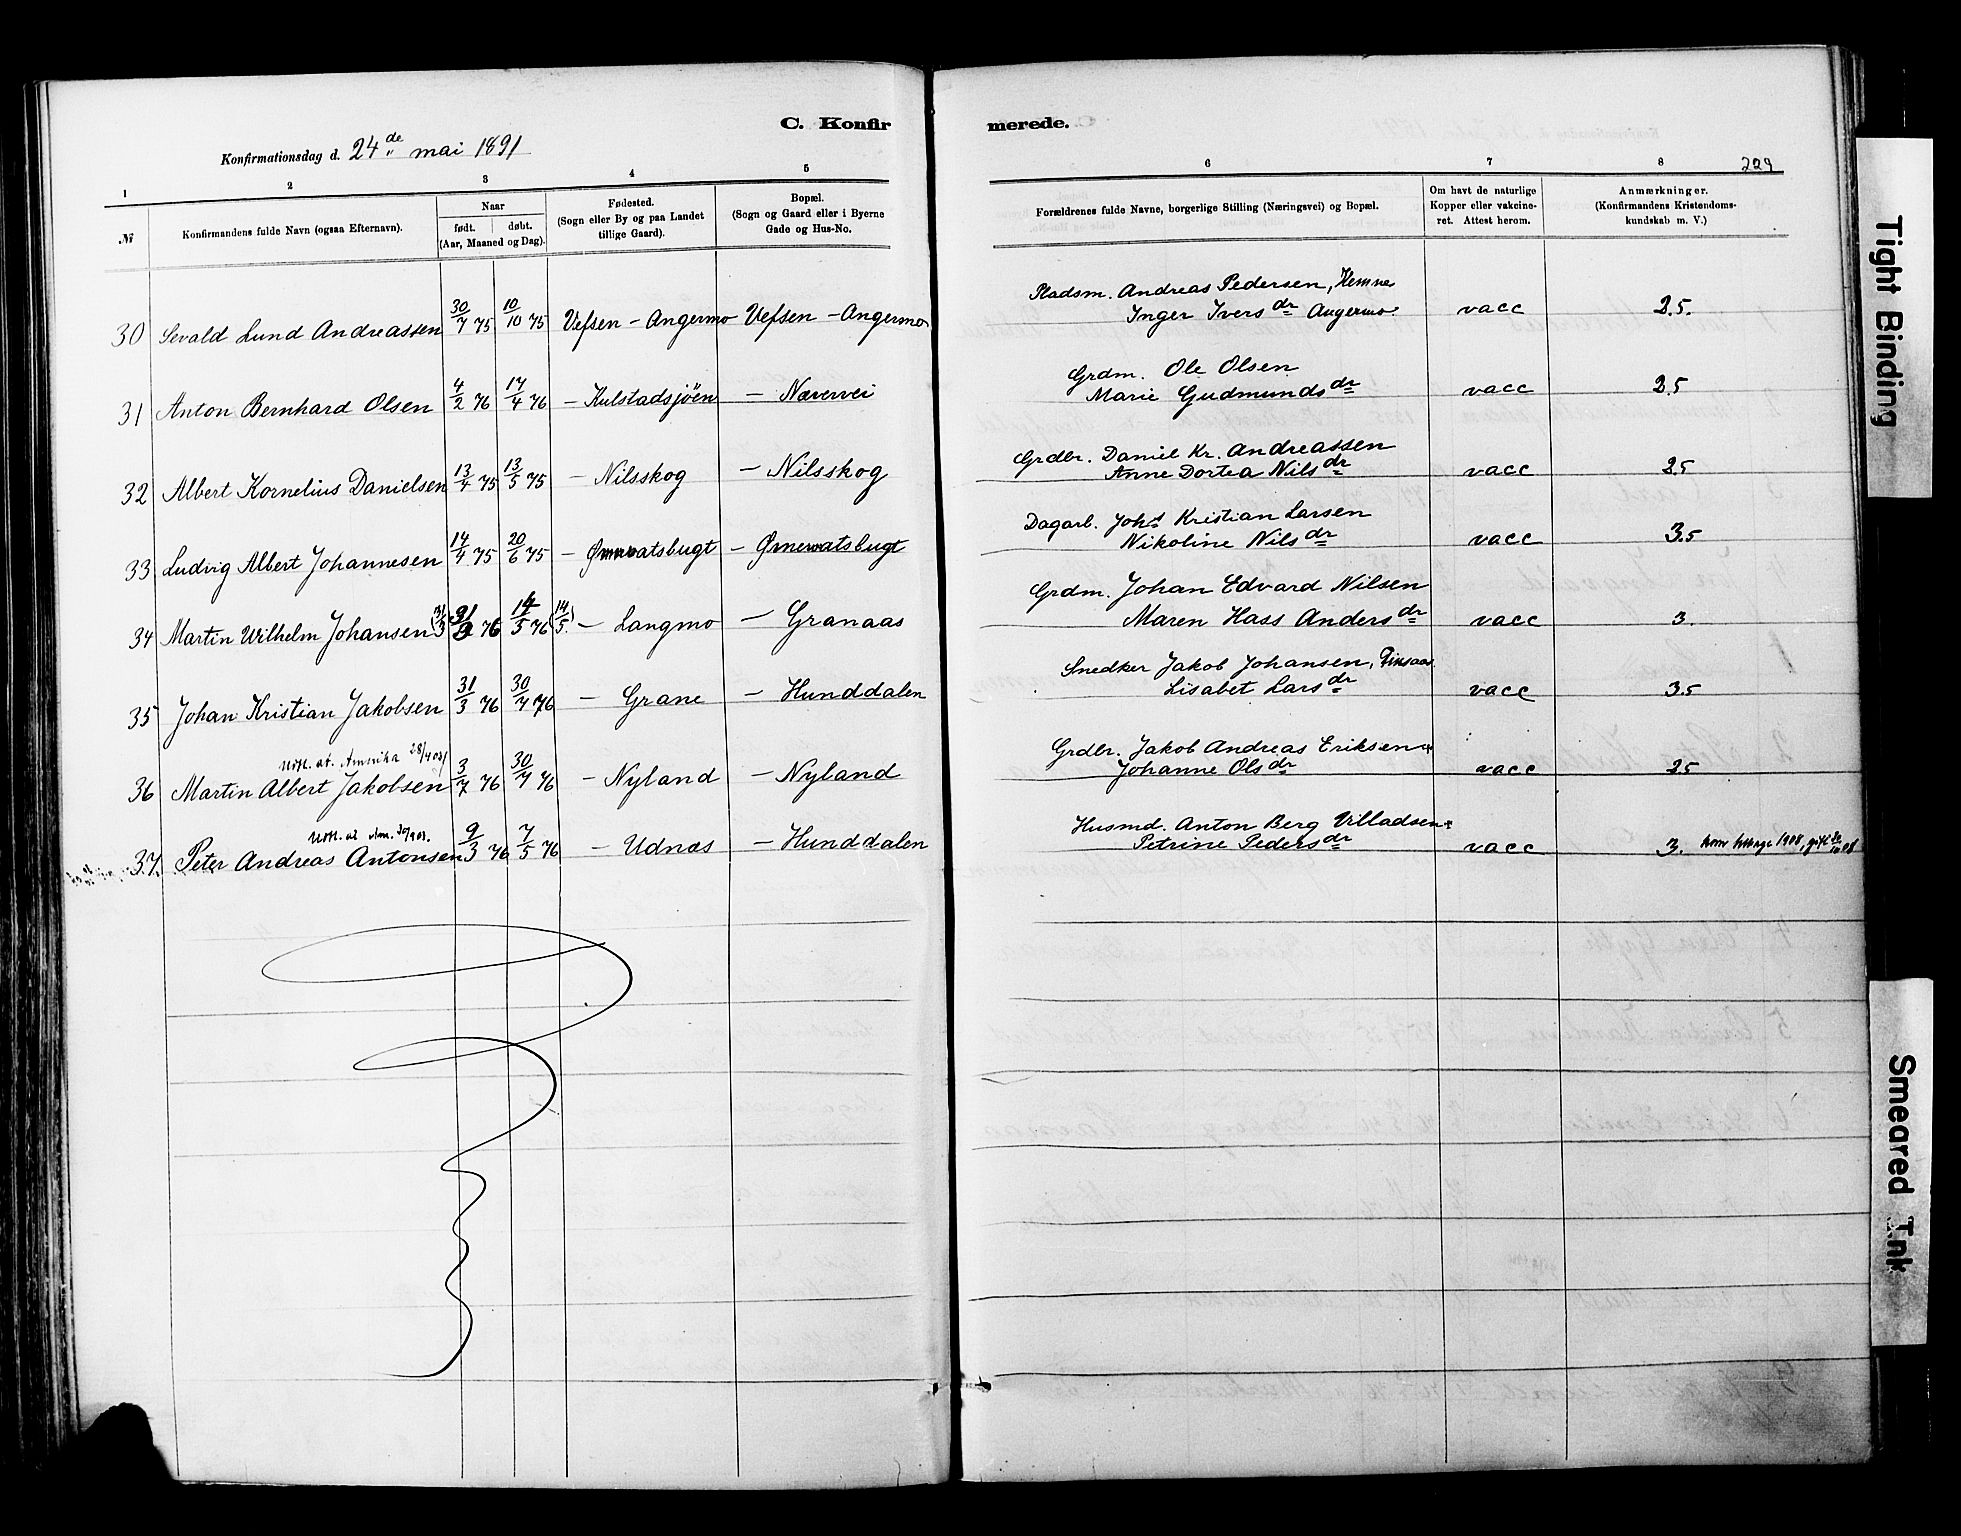 C. Konfirmerede.
Konfirmationsdag d. 24de mai 1891
229
1 2 3 4 5 6 7 8
№
Konfirmandens fulde Navn (ogsaa Efternavn).
Naar
født. døbt.
(Aar, Maaned og Dag).
Fødested.
(Sogn eller By og paa Landet
tillige Gaard).
Bopæl.
(Sogn og Gaard eller i Byerne
Gade og Hus-No.
Forældrenes fulde Navne, borgerlige Stilling (Næringsvei) og Bopæl.
Om havt de naturlige
Kopper eller vakcine-
ret. Attest herom.
Anmærkninger.
(Konfirmandens Kristendoms-
kundskab m. V.)
30 Sevald Lund Andreassen 30/7 75 10/10 75 Vefsen - Angermo Vefsen - Angermo Pladsm. Andreas Pedersen, Hemne
Inger Iversdr Angermo vacc 2.5.
31 Anton Bernhard Olsen 4/2 76 17/4 76 - Kulstadsjöen - Nævervei Grdm. Ole Olsen
Marie Gudmundsdr vacc 2.5
32 Albert Kornelius Danielsen 13/4 75 13/5 75 - Nilsskog - Nilsskog Grdbr. Daniel Kr. Andreassen
Anne Dortea Nilsdr vacc 25
33 Ludvig Albert Johannesen 14/4 75 20/6 75 - Ørnevatsbugt - Ørnevatsbugt Dagarb. Johs Kristian Larsen
Nikoline Nilsdr vacc 3.5
34 Martin Wilhelm Johansen (31/3) 31/3 76 14/5 76 (14/5.) - Langmo - Granaas Grdm. Johan Edvard Nilsen
Maren Hass Andersdr vacc 3.
35 Johan Kristian Jakobsen 31/3 76 30/4 76 - Grane - Hunddalen Snedker Jakob Johansen,
Lisabet Larsdr vacc 3.5
Udfl. at. Amerika 28/4 03
36 Martin Albert Jakobsen 3/7 76 30/7 76 - Nyland - Nyland Grdbr. Jakob Andreas Eriksen
Johanne Olsdr vacc 25
Udfl. at Am.
37. Peter Andreas Antonsen 9/3 76 7/5 76 - Udnæs - Hunddalen Husmd. Anton Berg Villadsen
Petrine Pedersdr vacc 3. kom tilbage 1908, gift
Tight Binding
Smeared Ink